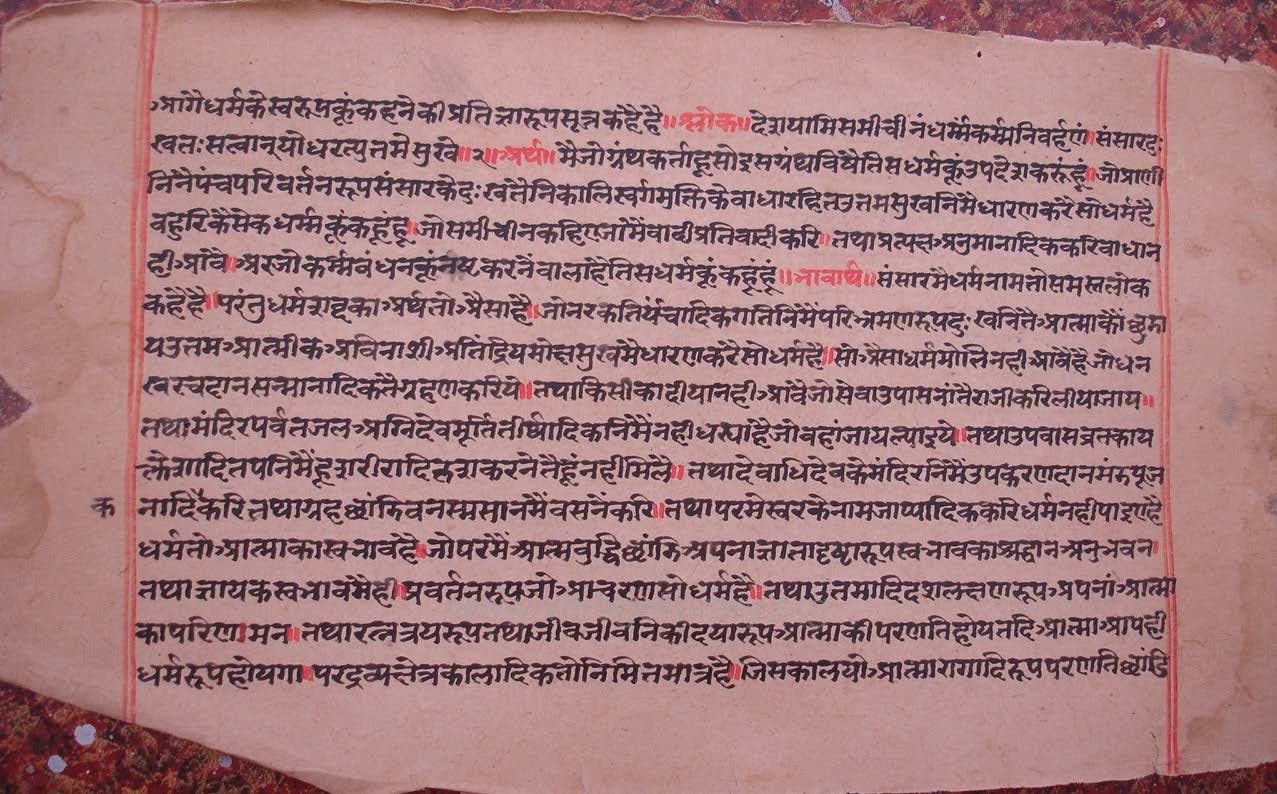 आगैधर्मकेस्वरूपकूंकहनेकीप्रतिज्ञारूपसूत्रकहैहै॥श्लोक॥देशयामिसमीचीनंधर्म्मंकर्म्मनिवर्हणं॥संसारदुः
खतःसत्वान्योधरत्युत्तमेसुखे॥२॥अर्थ॥मैजोग्रंथकर्ताहूसोइसग्रंथविषैतिसधर्मकूंउपदेशकरूंहूं॥जोप्राणी
निनैपंचपरिवर्तनरूपसंसारकेदुःखतैनिकालिस्वर्गमुक्तिकेवाधारहितउत्तमसुखनिमैधारणकरैसोधर्महै
वहुरिकैसेकधर्म्मकूंकहूंहूं॥जोसमीचीनकहिएजामैंवादीप्रतिवादीकरि॥तथाप्रत्यक्षअनुमानादिककरिवाधान
हीआंवै॥अरजोकर्म्मवंधनकूंनष्टकरनैवालाहैतिसधर्मकूंकहूंहूं॥भावार्थ॥संसारमैधर्मनामतोसमस्तलोक
कहैहै॥परंतुधर्मशब्दकाअर्थतोअैसाहै॥जोनरकतिर्यंचादिकगतिनिमैंपरिभ्रमणरूपदुःखनितैआत्माकौंछुडा
यउत्तमआत्मीकअविनाशीअतिंद्रियमोक्षसुखमैधारणकरैसोधर्महै॥सोअैसाधर्ममोलिनहीआवैहैजोधन
खरचदानसन्मानादिकतैग्रहणकरिये॥तथाकिसीकादीयानहीआंवैजोसेवाउपासनांतैराजीकरिलीयाजाय॥
तथामंदिरपर्वतजलअग्निदेवमूर्तितीर्थादिकनिमैंनहीधस्याहैजोवहांजायल्याइये॥तथाउपवासव्रतकाय
क्लेशादितपनिमैंहूशरीरादिकृशकरनेतैहूंनहीमिलै॥तथादेवाधिदेवकेमंदिरनिमैंउपकरणदानमंडपूज
क
नादिकरितथाग्रहछांडिवनस्मसानमैंवसनेंकरि॥तथापरमेस्वरकेनामजाप्यादिककरिधर्मनहीपाइएहै
धर्मतोआत्माकास्वभावहै॥जोपरमैंआत्मवुद्धिछांडिअपनाज्ञातादृष्टारूपस्वभावकाश्रद्धानअनुभवन॥
तथाज्ञायकस्वभावमैही॥प्रवर्तनरूपजोआचरणसोधर्महै॥तथाउत्तमादिदशलक्षणरूपअपनांआत्मा
कापरिणमन॥तथारत्नत्रयरूपतथाजीवजीवनिकीदयारूपआत्माकीपरणतिहोयतदिआत्माआपही
धर्मरूपहोयगा॥परद्रव्यक्षेत्रकालादिकतोनिमितमात्रहै॥जिसकालयोआत्मारागादिरूपपरणतिछांडि